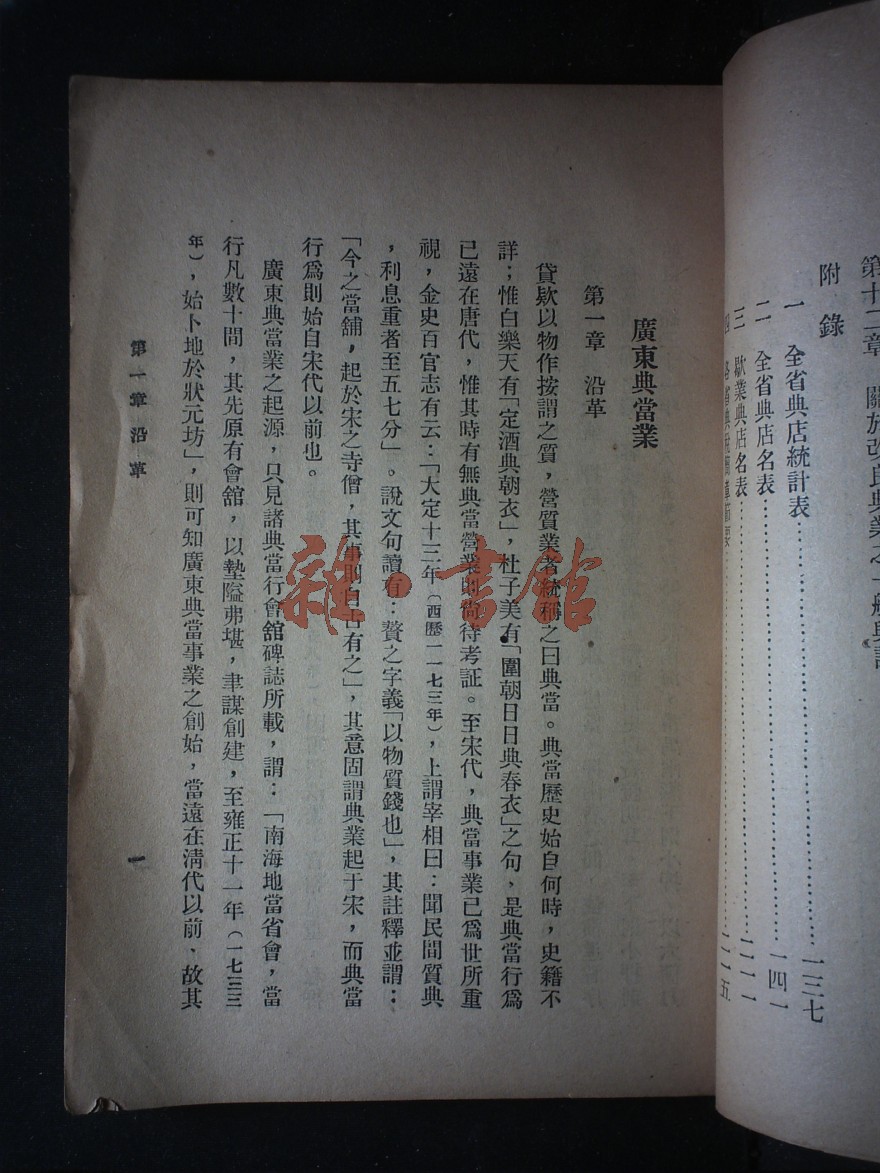 附錄
一 全省典店統計表……一三七
二 全省典店名表……一四一
三 歇業典店名表……
廣東典當業
第一章 沿革
貸欵以物作按謂之質，營質業者統稱之曰典當。典當歷史始自何時，史籍不
詳；惟白樂天有「定酒典朝衣」，杜子美有「圍朝日日典春衣」之句，是典當行爲
已遠在唐代，惟其時有無典當營業則尚待考証。至宋代，典當事業已爲世所重
視，金史百官志有云：「大定十三年（西歷一一七三年），上謂宰相曰：聞民間質典
，利息重者至五七分」。說文句讀有：贅之字義「以物質錢也」，其註釋並謂：
「今之當舖，起於宋之寺僧，其事則自古有之」，其意固謂典業起于宋，而典當
行爲則始自宋代以前也。
廣東典當業之起源，只見諸典當行會舘碑誌所載，謂：「南海地當省會，當
行凡數十間，其先原有會舘，以墊隘弗堪，聿謀創建，至雍正十一年（一七三三
年），始卜地於狀元坊」，則可知廣東典當事業之創始，當遠在清代以前、故其
第一章 沿革
一
雜·書館